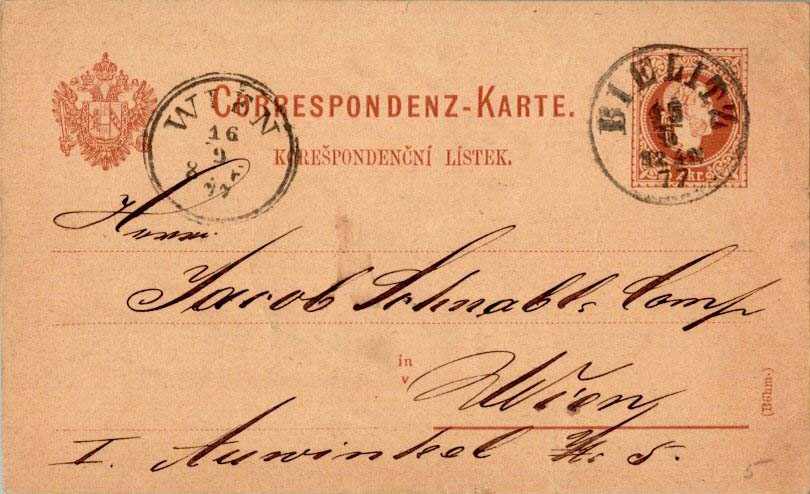 CORRESPONDENZ-KARTE.
KOREŠPONDENČNÍ LÍSTEK.
WIEN
16
9
8
BIELITZ
15
9
77
kr.
Herrn
Jacob Schnabl & Comp
in
v
Wien
(Böhm.)
I. Auwinkel Nr 5.
5